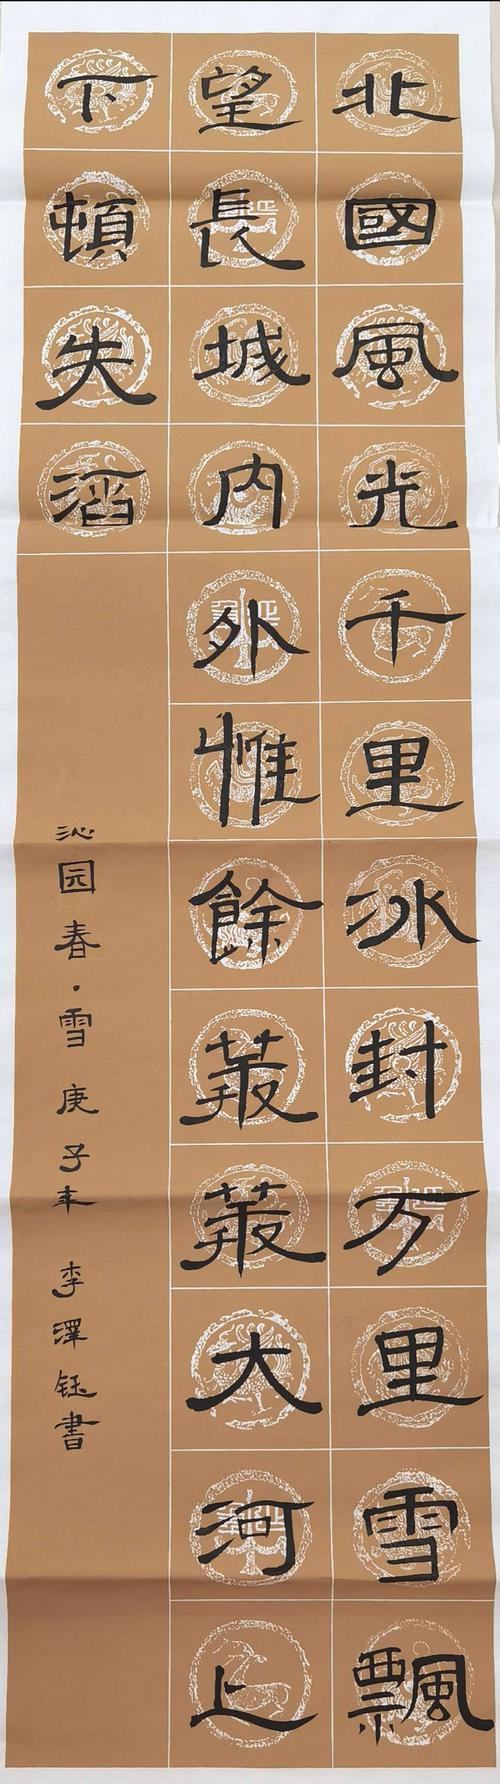 北國風光千里冰封万里雪飄
望長城内外惟餘莽莽大河上
下頓失滔
沁园春·雪 庚子年 李澤钰書